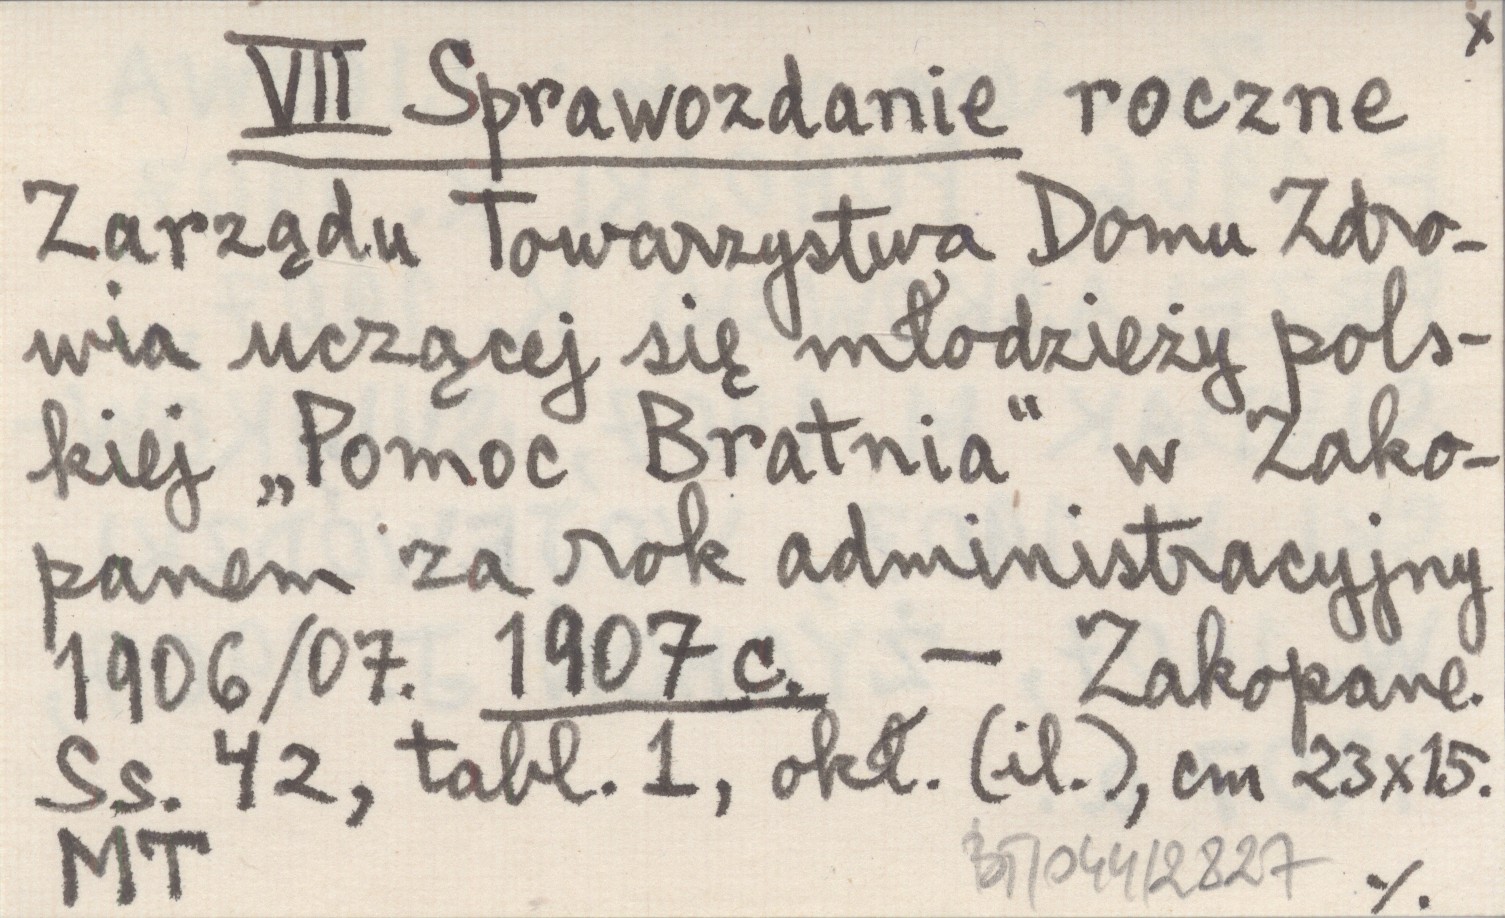 x
VII Sprawozdanie roczne
Zarządu Towarzystwa Domu Zdro-
wia uczącej się młodzieży pols-
kiej „Pomoc Bratnia“ w Zako-
panem za rok administracyjny
1906/07. 1907 c. — Zakopane.
Ss. 42, tabl. 1, okł. (il.), cm 23x15.
MT ./.